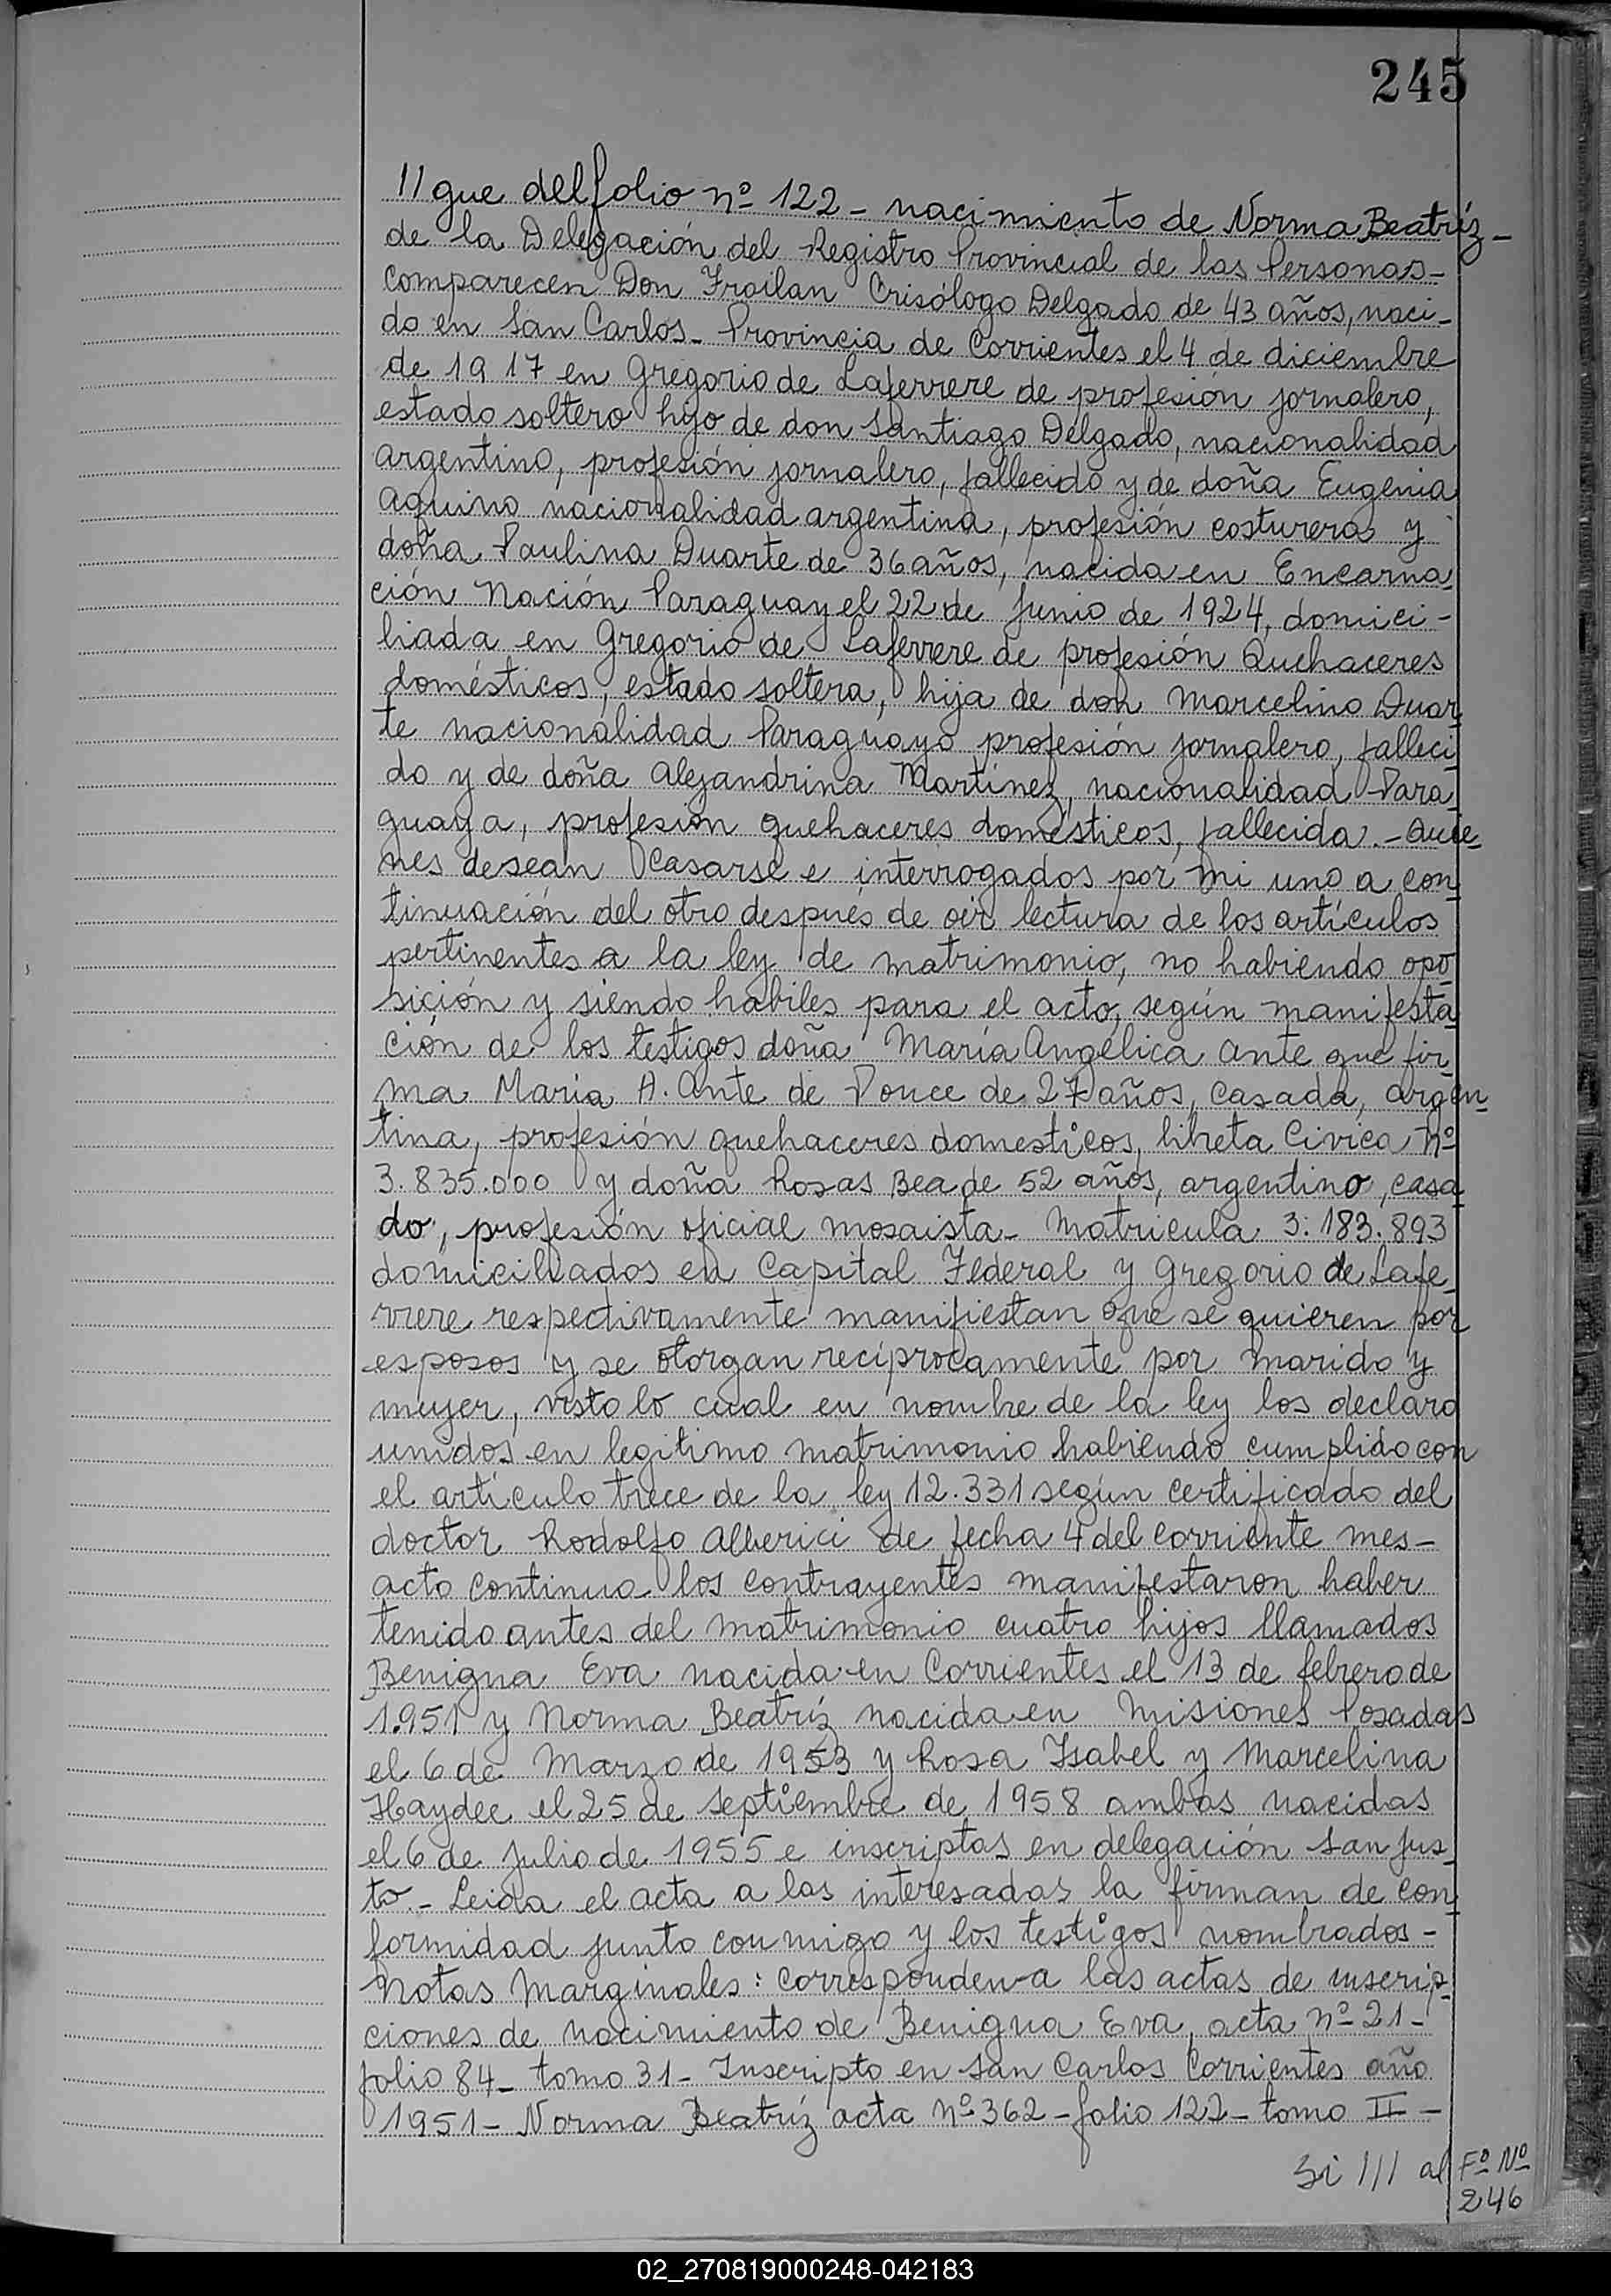 245
//gue del folio nº 122 - nacimiento de Norma Beatríz -
de la Delegación del Registro Provincial de las Personas -
comparecen Don Froilan Crisólogo Delgado de 43 años, naci-
do en San Carlos - Provincia de Corrientes el 4 de diciembre
de 1917 en Gregorio de Laferrere de profesión jornalero,
estado soltero hijo de don Santiago Delgado, nacionalidad
argentino, profesión jornalero, fallecido y de doña Eugenia
Aquino nacionalidad argentina, profesión costurera y
doña Paulina Duarte de 36 años, nacida en Encarna
ción Nación Paraguay el 22 de Junio de 1924, domici-
liada en Gregorio de Laferrere de profesión Quehaceres
domésticos, estado soltera, hija de don Marcelino Duar-
te nacionalidad Paraguayo profesión jornalero, falleci
do y de doña Alejandrina Martínez, nacionalidad Para-
guaya, profesión quehaceres domésticos, fallecida. - Quie-
nes desean casarse e interrogados por mi uno a con
tinuación del otro después de oir lectura de los artículos
pertinentes a la ley de matrimonio, no habiendo opo-
sición y siendo habiles para el acto, según manifesta
ción de los testigos doña María Angélica Ante que fir-
ma María A. Ante de Ponce de 27 años, casada, argen-
tina, profesión quehaceres domesticos, libreta Civica Nº
3.835.000 y doña Rosas Bea de 52 años, argentino, casa-
do, profesión oficial mosaista - Matricula 3.183.893
domiciliados en Capital Federal y Gregorio de Lafe-
rrere respectivamente manifiestan que se quieren por
esposos y se otorgan recíprocamente por marido y
mujer, visto lo cual en nombre de la ley los declaro
unidos en legitimo matrimonio habiendo cumplido con
el artículo trece de la ley 12.331 según certificado del
doctor Rodolfo Alberici de fecha 4 del corriente mes -
acto continuo los contrayentes manifestaron haber
tenido antes del matrimonio cuatro hijos llamados
Benigna Eva nacida en Corrientes el 13 de febrero de
1.951 y Norma Beatríz nacida en Misiones Posadas
el 6 de Marzo de 1953 y Rosa Isabel y Marcelina
Haydee el 25 de septiembre de 1958 ambas nacidas
el 6 de Julio de 1955 e inscriptas en delegación San Jus-
to. - Leida el acta a las interesadas la firman de con-
formidad junto conmigo y los testigos nombrados -
Notas Marginales: Corresponden a las actas de inscrip-
ciones de nacimiento de Benigna Eva, acta nº 21 -
folio 84 - tomo 31 - Inscripto en San Carlos Corrientes año
1951 - Norma Beatríz acta Nº 362 - folio 122 - tomo II -
Si /// al Fº Nº
246
02_270819000248-042183